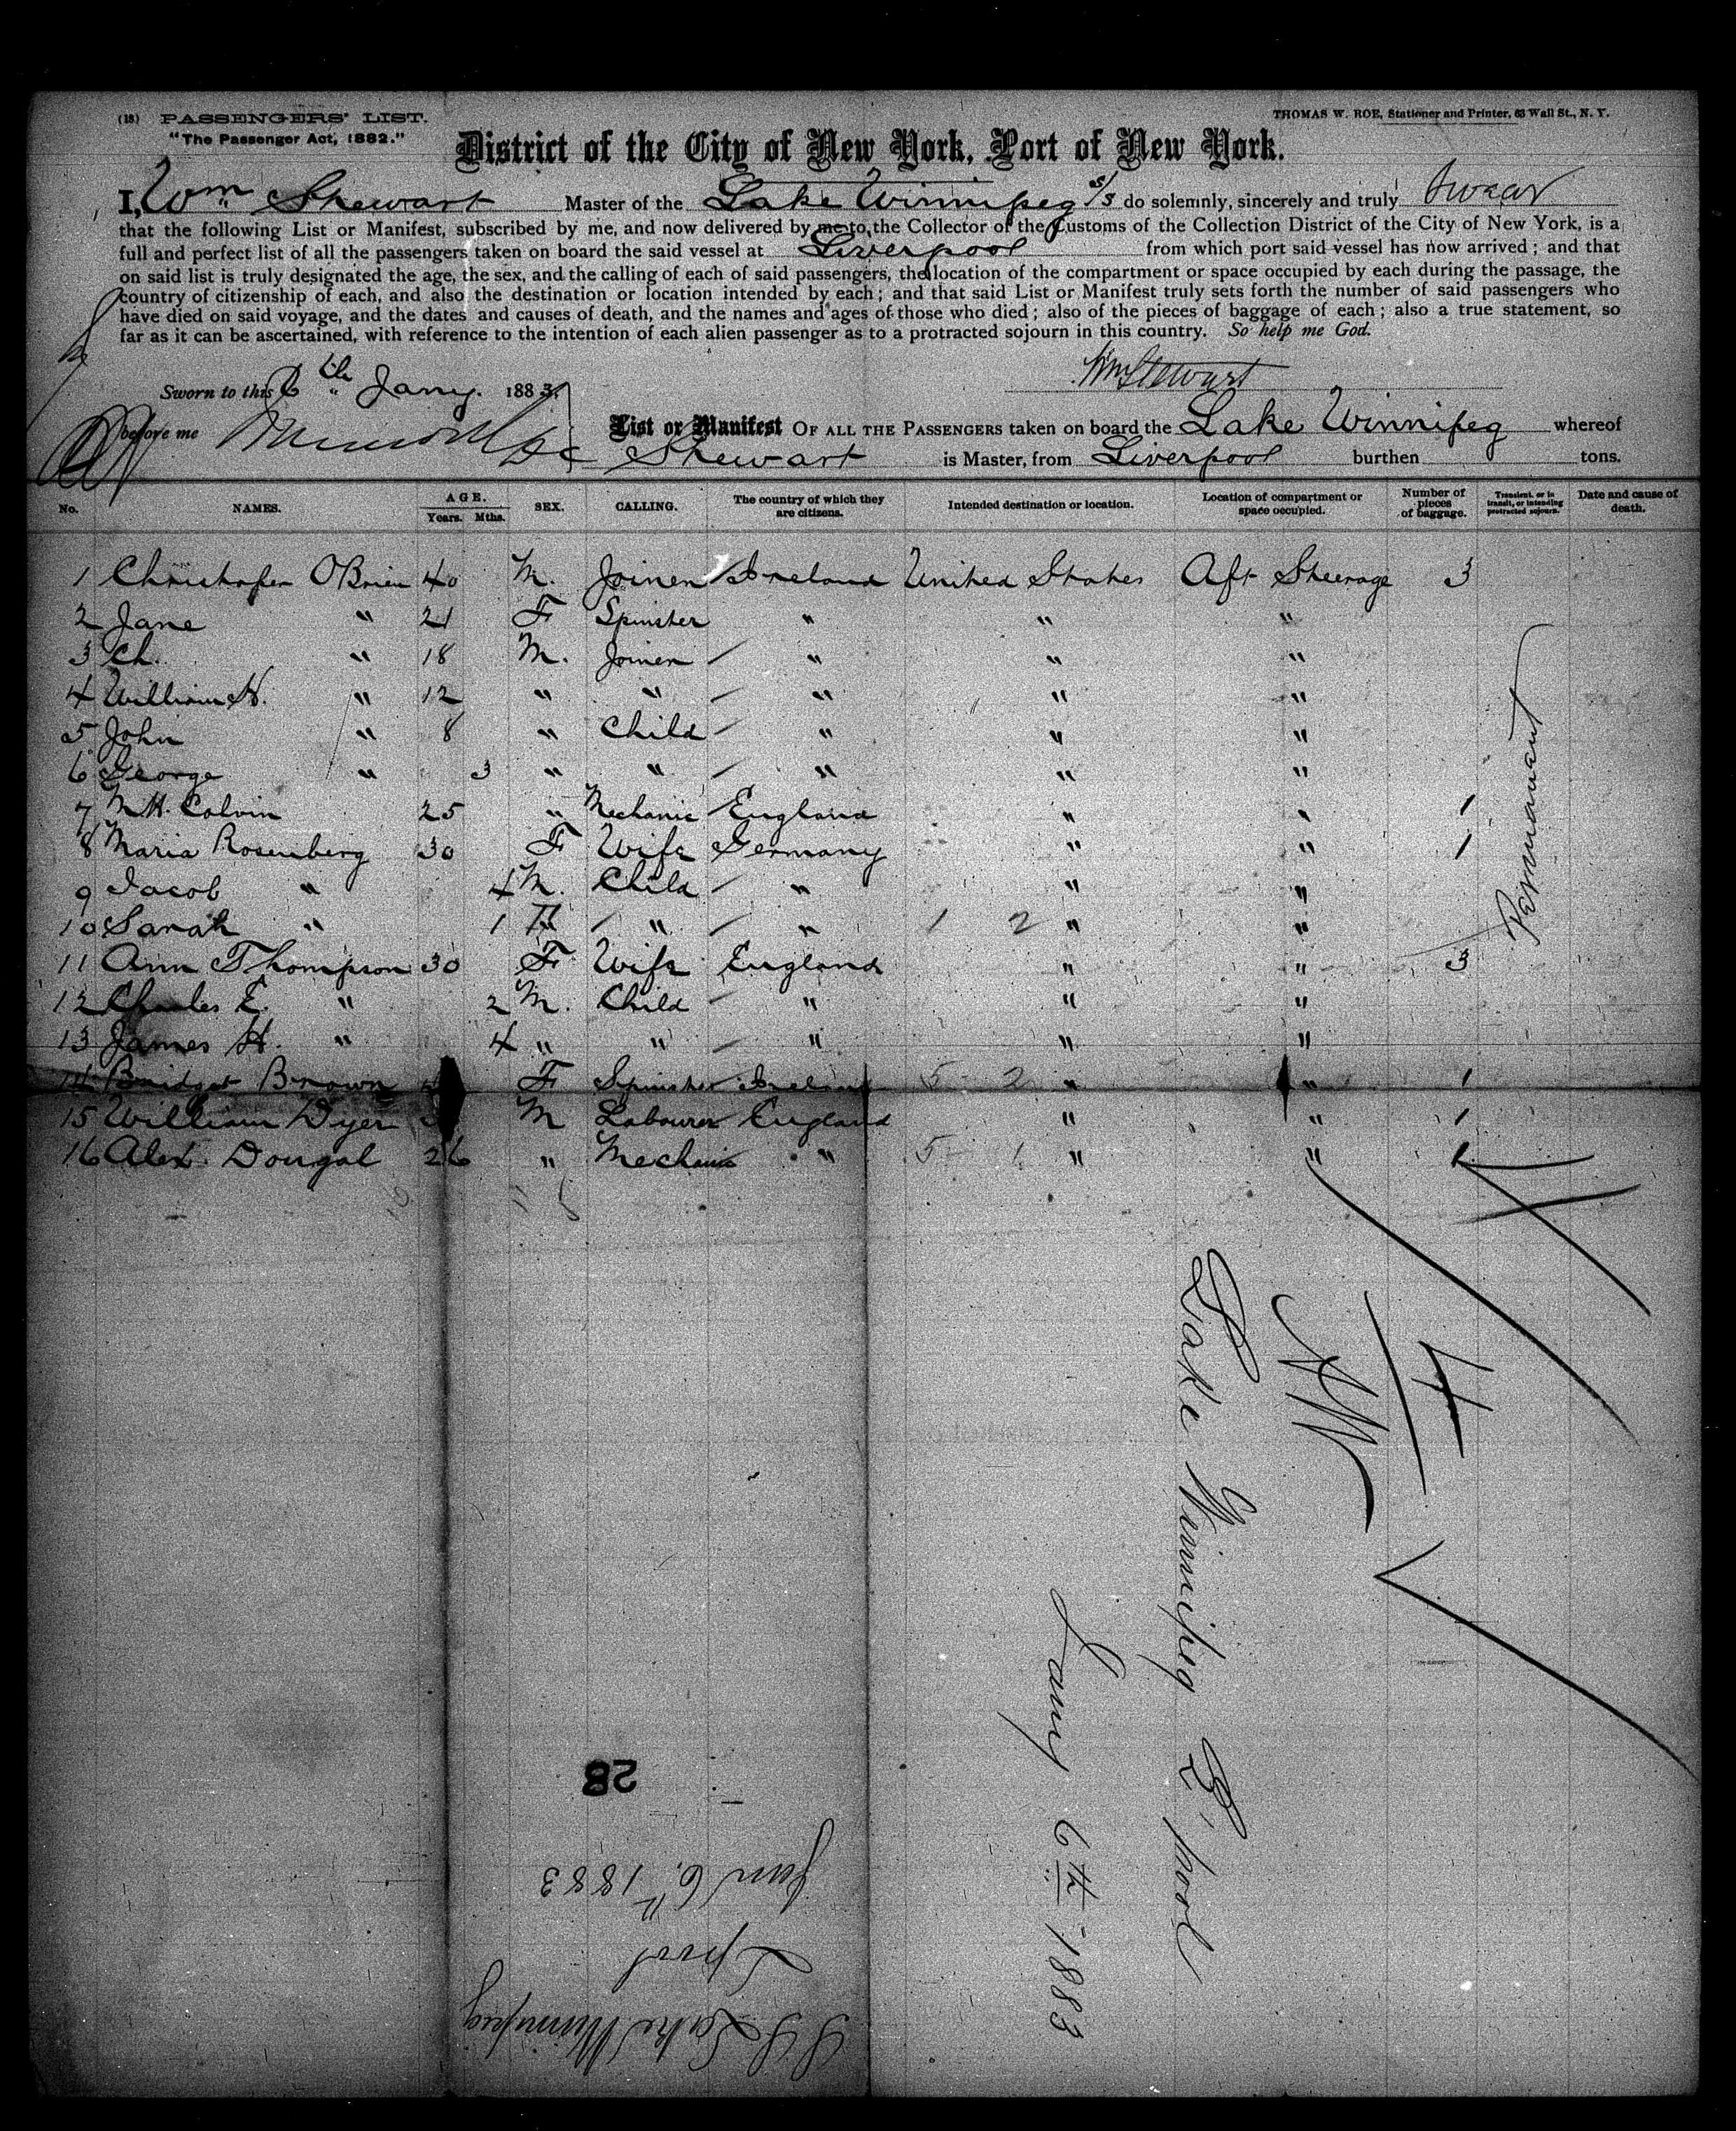 (18) PASSENGERS' LIST.
"The Passenger Act, 1882."
THOMAS W. ROE, Stationer and Printer, 63 Wall St., N. Y.
District of the City of New York, Port of New York.
I, Wm Stewart Master of the Lake Winnipeg s/s do solemnly, sincerely and truly swear
that the following List or Manifest, subscribed by me, and now delivered by me to the Collector of the Customs of the Collection District of the City of New York, is a
full and perfect list of all the passengers taken on board the said vessel at Liverpool from which port said vessel has now arrived; and that
on said list is truly designated the age, the sex, and the calling of each of said passengers, the location of the compartment or space occupied by each during the passage, the
country of citizenship of each, and also the destination or location intended by each; and that said List or Manifest truly sets forth the number of said passengers who
have died on said voyage, and the dates and causes of death, and the names and ages of those who died; also of the pieces of baggage of each; also a true statement, so
far as it can be ascertained, with reference to the intention of each alien passenger as to a protracted sojourn in this country. So help me God.
Wm Stewart
Sworn to this 6th Jany. 1883
before me
List or Manifest OF ALL THE PASSENGERS taken on board the Lake Winnipeg whereof
Stewart is Master, from Liverpool burthen tons.
No. NAMES. AGE. Years. Mths. SEX. CALLING. The country of which they are citizens. Intended destination or location. Location of compartment or space occupied. Number of pieces of baggage. Transient, or in transit, or intending protracted sojourn. Date and cause of death.
1 Christopher OBrien 40 M. Joiner Ireland United States Aft Steerage 3
2 Jane " 21 F Spinster " " "
3 Ch. " 18 M. Joiner " " "
4 William H. " 12 " " " " "
5 John " 8 " Child " " "
6 George " 3 " " " " "
7 M H. Colvin 25 " Mechanic England " " 1
8 Maria Rosenberg 30 F Wife Germany " " 1
9 Jacob " 4 M. Child " " "
10 Sarah " 1 F " " 1 2 " "
11 Ann Thompson 30 F Wife England " " 3
12 Charles E. " 2 M. Child " " "
13 James H. " 4 " " " " "
14 Bridget Brown F Spinster Ireland 5 2 " " 1
15 William Dyer M Labourer England " " 1
16 Alex. Dougal 26 " Mechanic " 5 1 " " 1
Permanant
4
Lake Winnipeg L'pool
Jany 6th 1883
28
S S Lake Winnipeg
Lpool
Jan 6th 1883